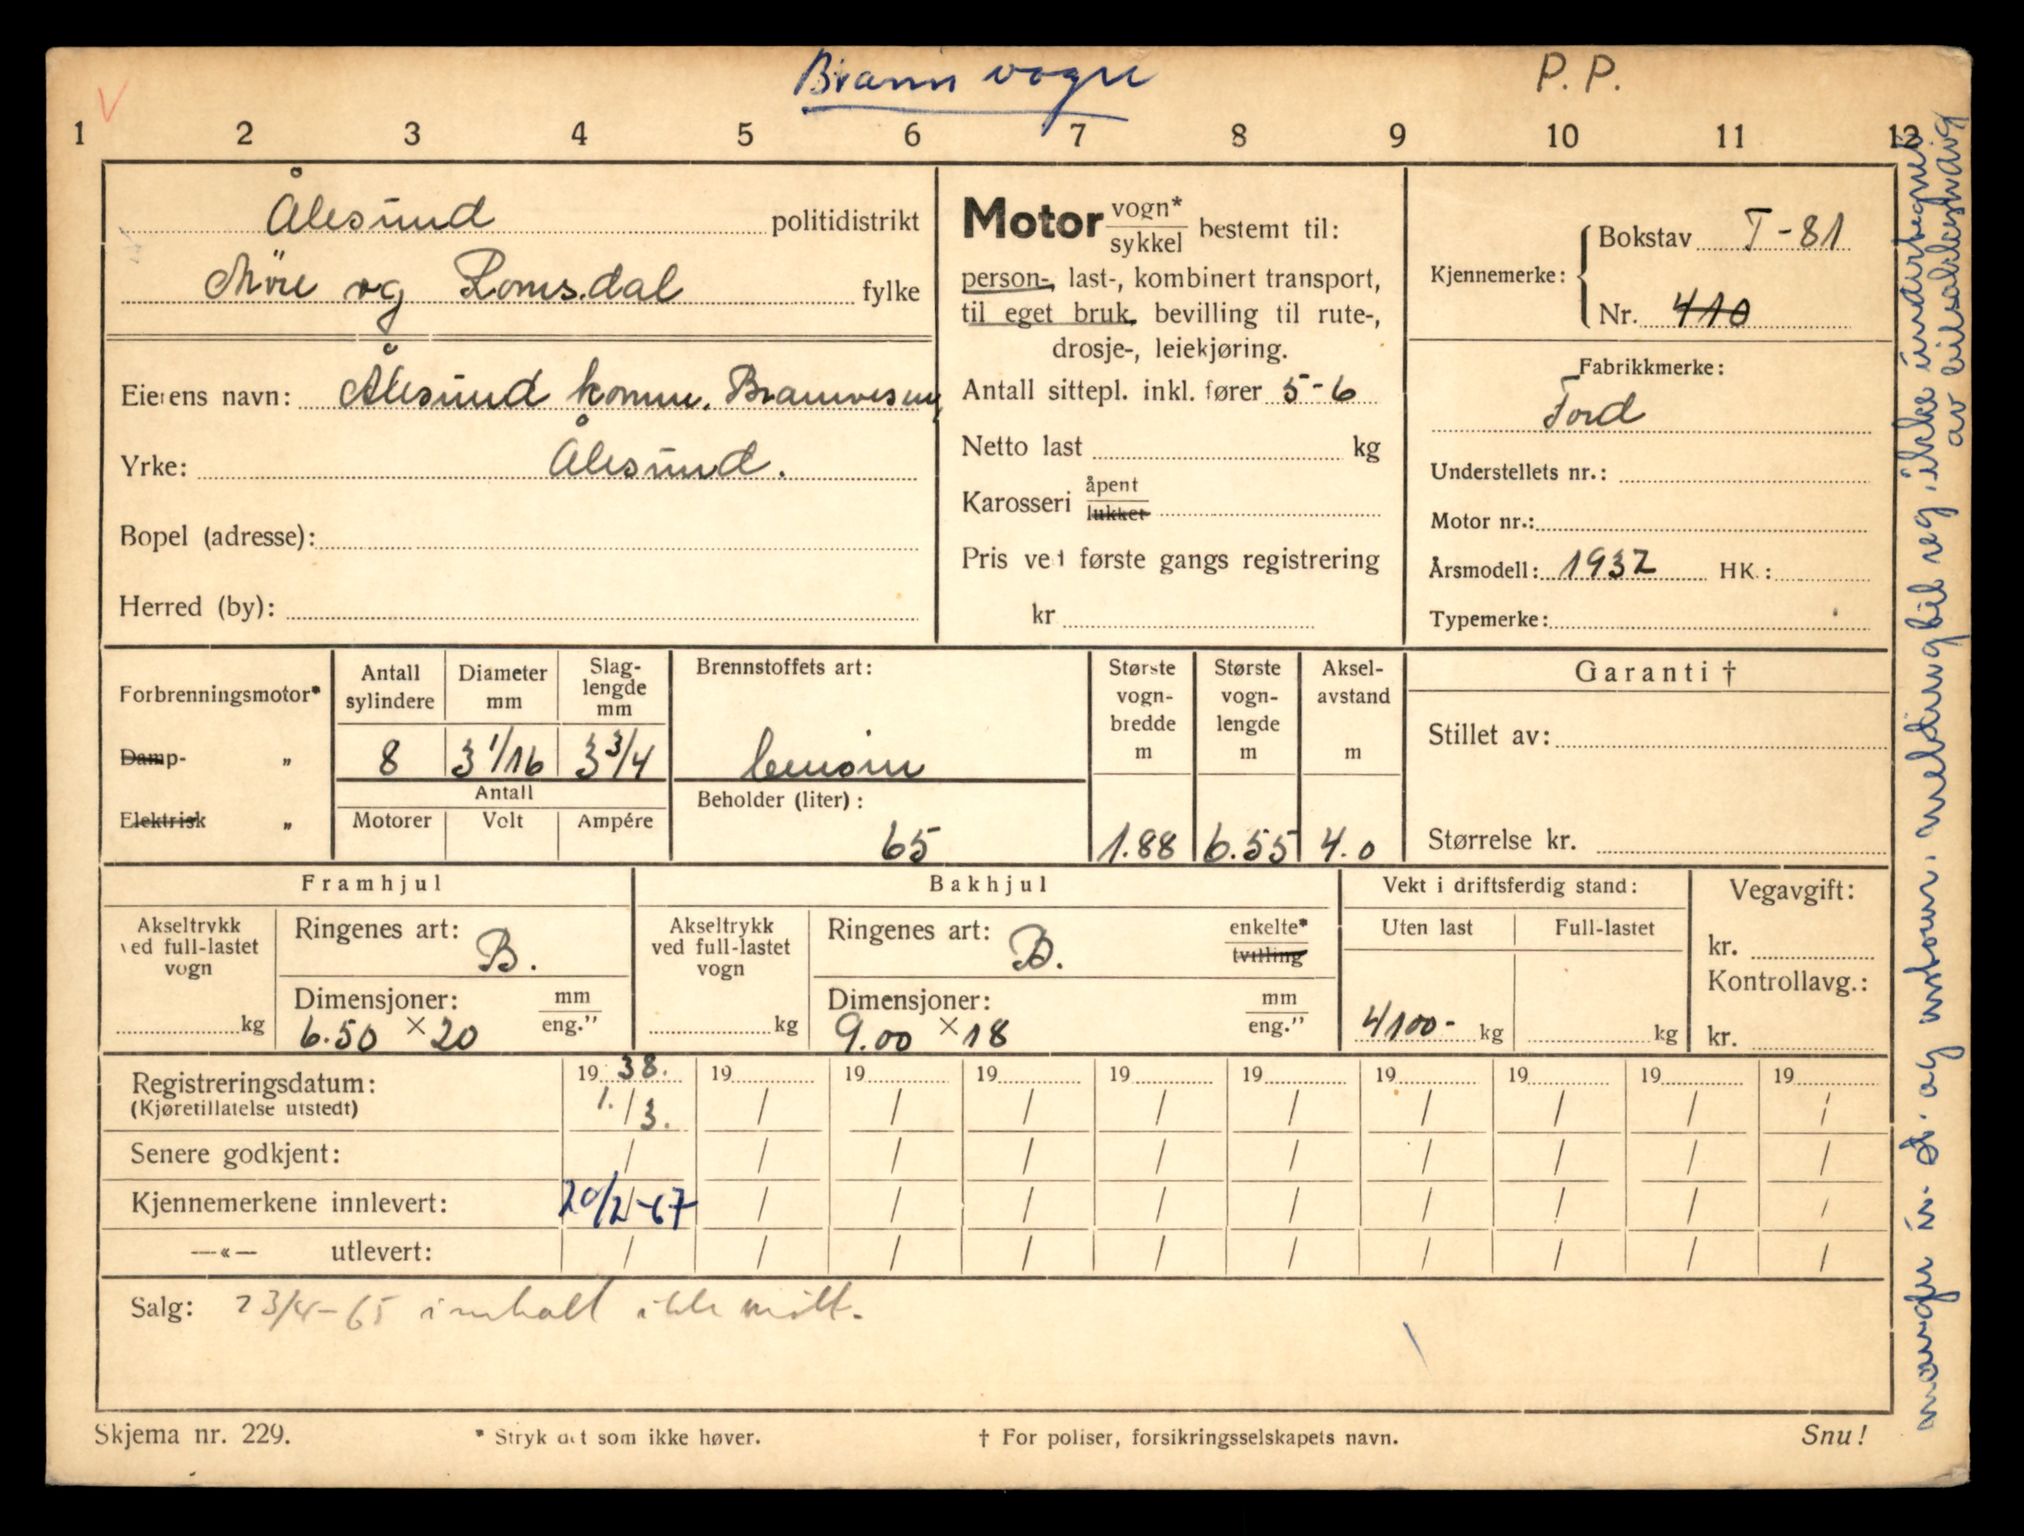 Brann vogn P. P.
V
1 2 3 4 5 6 7 8 9 10 11 12
Ålesund politidistrikt
Möre og Romsdal fylke
Eierens navn: Ålesund komm. Brannvesen,
Yrke: Ålesund.
Bopel (adresse):
Herred (by):
Motor vogn* / sykkel bestemt til:
person-, last-, kombinert transport,
til eget bruk, bevilling til rute-,
drosje-, leiekjøring.
Antall sittepl. inkl. fører 5-6
Netto last kg
Karosseri åpent / lukket
Pris ved første gangs registrering
kr
Kjennemerke: Bokstav T-81
Nr. 410
Fabrikkmerke:
Ford
Understellets nr.:
Motor nr.:
Årsmodell: 1937 HK.:
Typemerke:
Forbrenningsmotor*
Damp- „
Elektrisk „
Antall sylindere
8
Diameter mm
3 1/16
Slaglengde mm
3 3/4
Antall
Motorer Volt Ampére
Brennstoffets art:
bensin
Beholder (liter):
65
Største vognbredde m
1.88
Største vognlengde m
6.55
Akselavstand m
4.0
Garanti †
Stillet av:
Størrelse kr.
Framhjul
Akseltrykk ved full-lastet vogn
kg
Ringenes art: B.
Dimensjoner: mm / eng.”
6.50 × 20
Bakhjul
Akseltrykk ved full-lastet vogn
kg
Ringenes art: B. enkelte* / tvilling
Dimensjoner: mm / eng.”
9.00 × 18
Vekt i driftsferdig stand:
Uten last Full-lastet
4100- kg kg
Vegavgift:
kr.
Kontrollavg.:
kr.
Registreringsdatum: 19 38. 19 19 19 19 19 19 19 19 19
(Kjøretillatelse utstedt) 1./3. / / / / / / / / /
Senere godkjent: / / / / / / / / / /
Kjennemerkene innlevert: 20/2-67 / / / / / / / / /
—«— utlevert: / / / / / / / / / /
Salg: 23/4-65 innkalt ikke møtt.
Skjema nr. 229. * Stryk det som ikke høver. † For poliser, forsikringsselskapets navn. Snu!
mangler og motorn. meldingbil reg. ikke
av